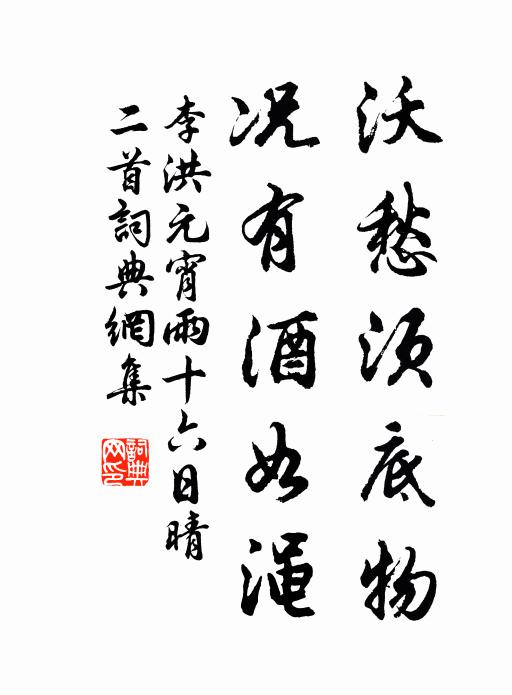 沃愁須底物
况有酒如渑
李洪元宵雨十六日晴
二首詞典網集
詞典网印